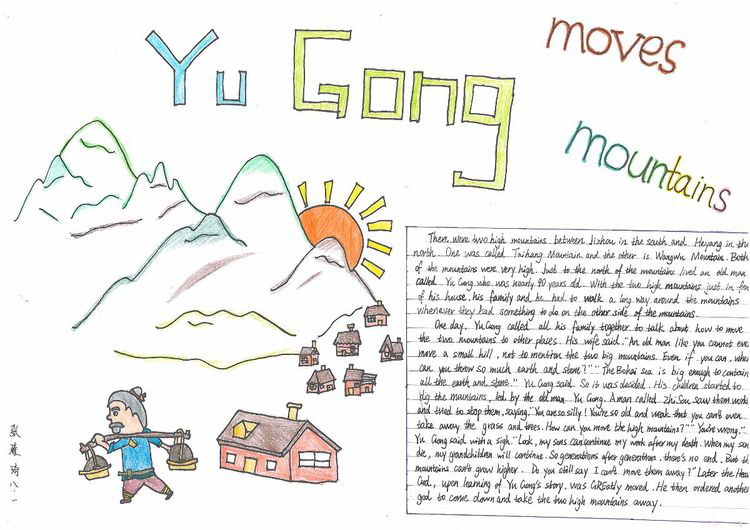 Yu Gong
moves
mountains
There were two high mountains between Jizhou in the south and Heyang in the
north. One was called Taihang Mountain and the other is Wangwu Mountain. Both
of the mountains were very high. Just to the north of the mountains lived an old man
called Yu Gong who was nearly 90 years old. With the two high mountains just in fron
of his house, his family and he had to walk a long way around the mountains
whenever they had something to do on the other side of the mountains.
One day, Yu Gong called all his family together to talk about how to move
the two mountains to other places. His wife said. "An old man like you cannot even
move a small hill, not to mention the two big mountains. Even if you can, who
can you throw so much earth and stone?" "The Bohai sea is big enough to contain
all the earth and stone." Yu Gong said. So it was decided. His children started to
dig the mountains, led by the old man Yu Gong. A man called ZhiSou saw them work
and tried to stop them, saying, "You are so silly! You're so old and weak that you can't even
take away the grass and trees. How can you move the high mountains?" "You're wrong,"
Yu Gong said with a sigh. "Look, my sons can continue my work after my death. When my son
die, my grandchildren will continue. So generations after generations, there's no end. But the
mountains can't grow higher. Do you still say I can't move them away?" Later the Hea
God, upon learning of Yu Gong's story, was GREatly moved. He then ordered another
god to come down and take the two high mountains away.
八.一